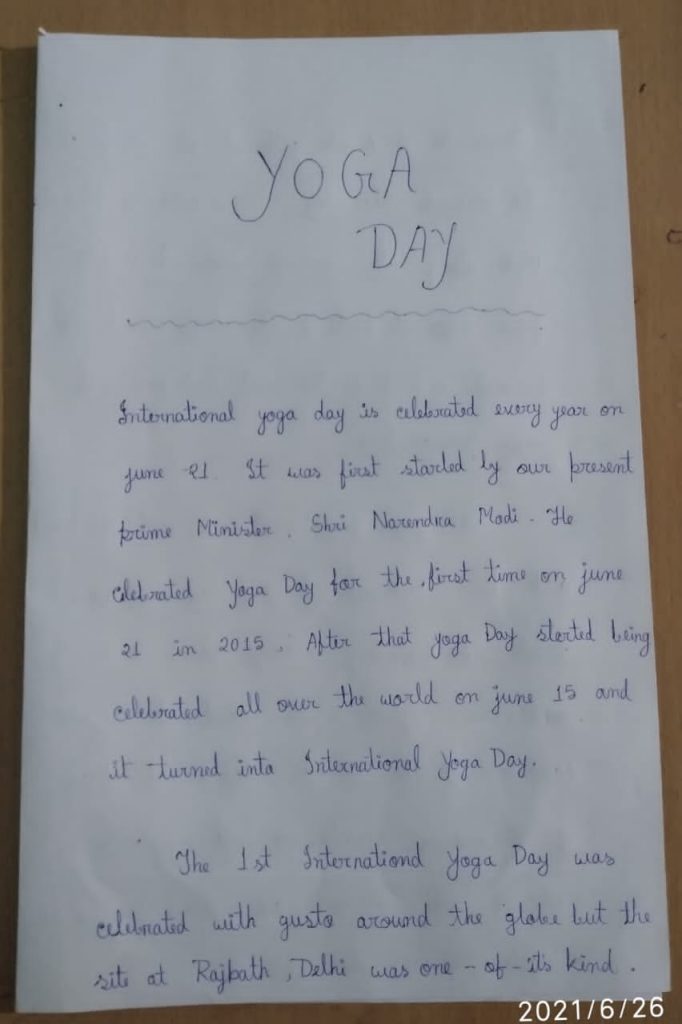 YOGA
DAY
International yoga day is celebrated every year on
june 21 It was first started by our present
prime Minister. Shri Narendra Modi. He
celebrated Yoga Day for the first time on june
21 in 2015. After that yoga Day started being
celebrated all over the world on june 15 and
it turned into International Yoga Day.
The 1st International Yoga Day was
celebrated with gusto around the globe but the
site at Rajpath, Delhi was one-of-its kind.
2021/6/26